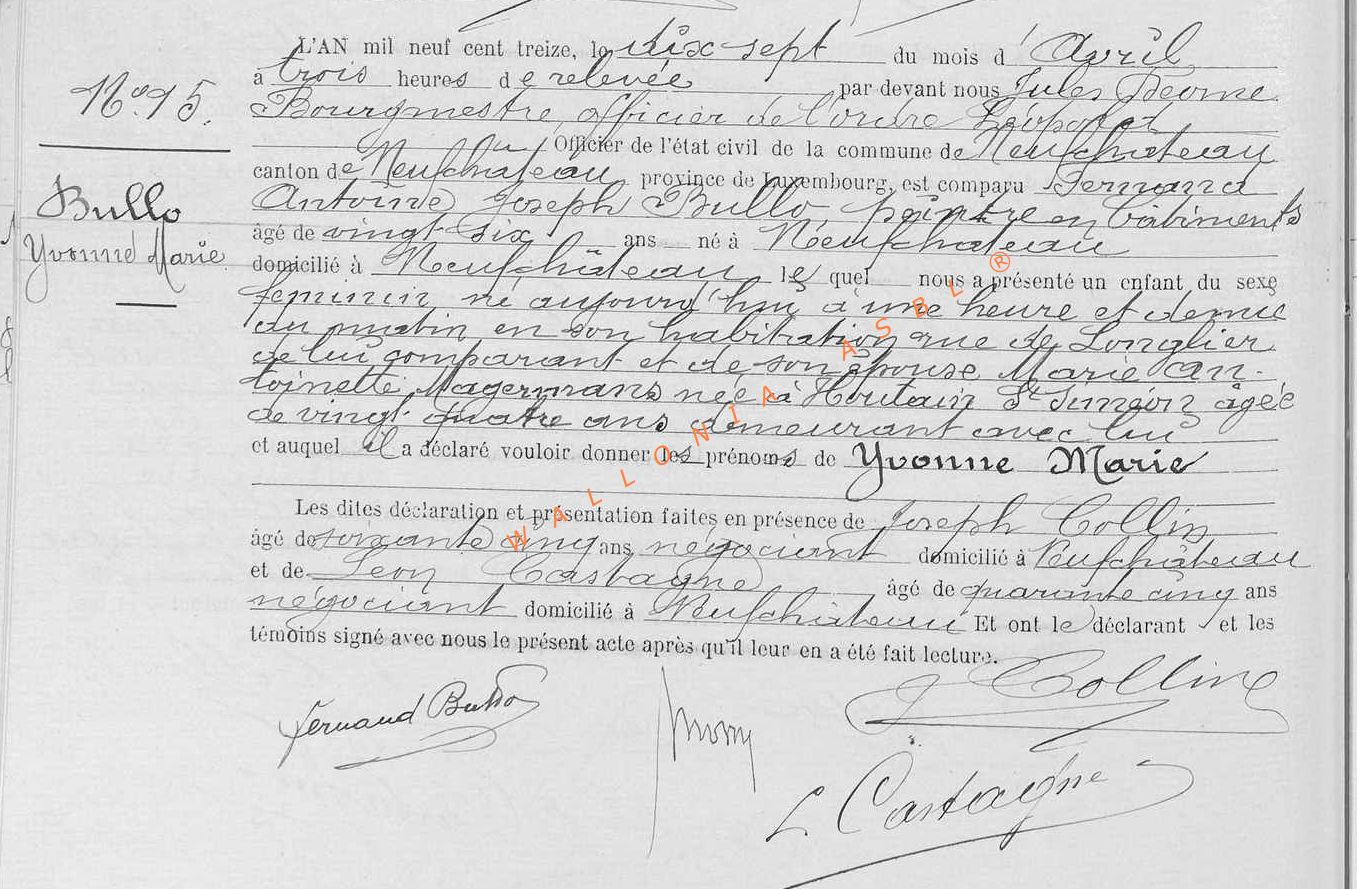 L'AN mil neuf cent treize, le dix sept du mois d'Avril
à trois heures de relevée par devant nous Jules
Bourgmestre, officier de l'ordre Léopold
Officier de l'état civil de la commune de Neufchateau
canton de Neufchateau province de Luxembourg, est comparu Fernand
Antoine Joseph Bullo, peintre en bâtiments
âgé de vingt six ans né à Neufchateau
domicilié à Neufchâteau lequel nous a présenté un enfant du sexe
feminin, né aujourd'hui à une heure et demie
du matin en son habitation rue de Longlier
de lui comparant et de son épouse Marie An-
toinette Magermans née à Houtain St Siméon âgée
de vingt quatre ans demeurant avec lui
et auquel il a déclaré vouloir donner les prénoms de Yvonne Marie
Les dites déclaration et présentation faites en présence de Joseph Collin
âgé de soixante cinq ans négociant domicilié à Neufchâteau
et de Léon Castagne âgé de quarante cinq ans
négociant domicilié à Neufchâteau Et ont le déclarant et les
témoins signé avec nous le présent acte après qu'il leur en a été fait lecture.
No 15.
Bullo
Yvonne Marie
Fernand Bullo
J Collin
L. Castagne
WALLONIA ASBL ®